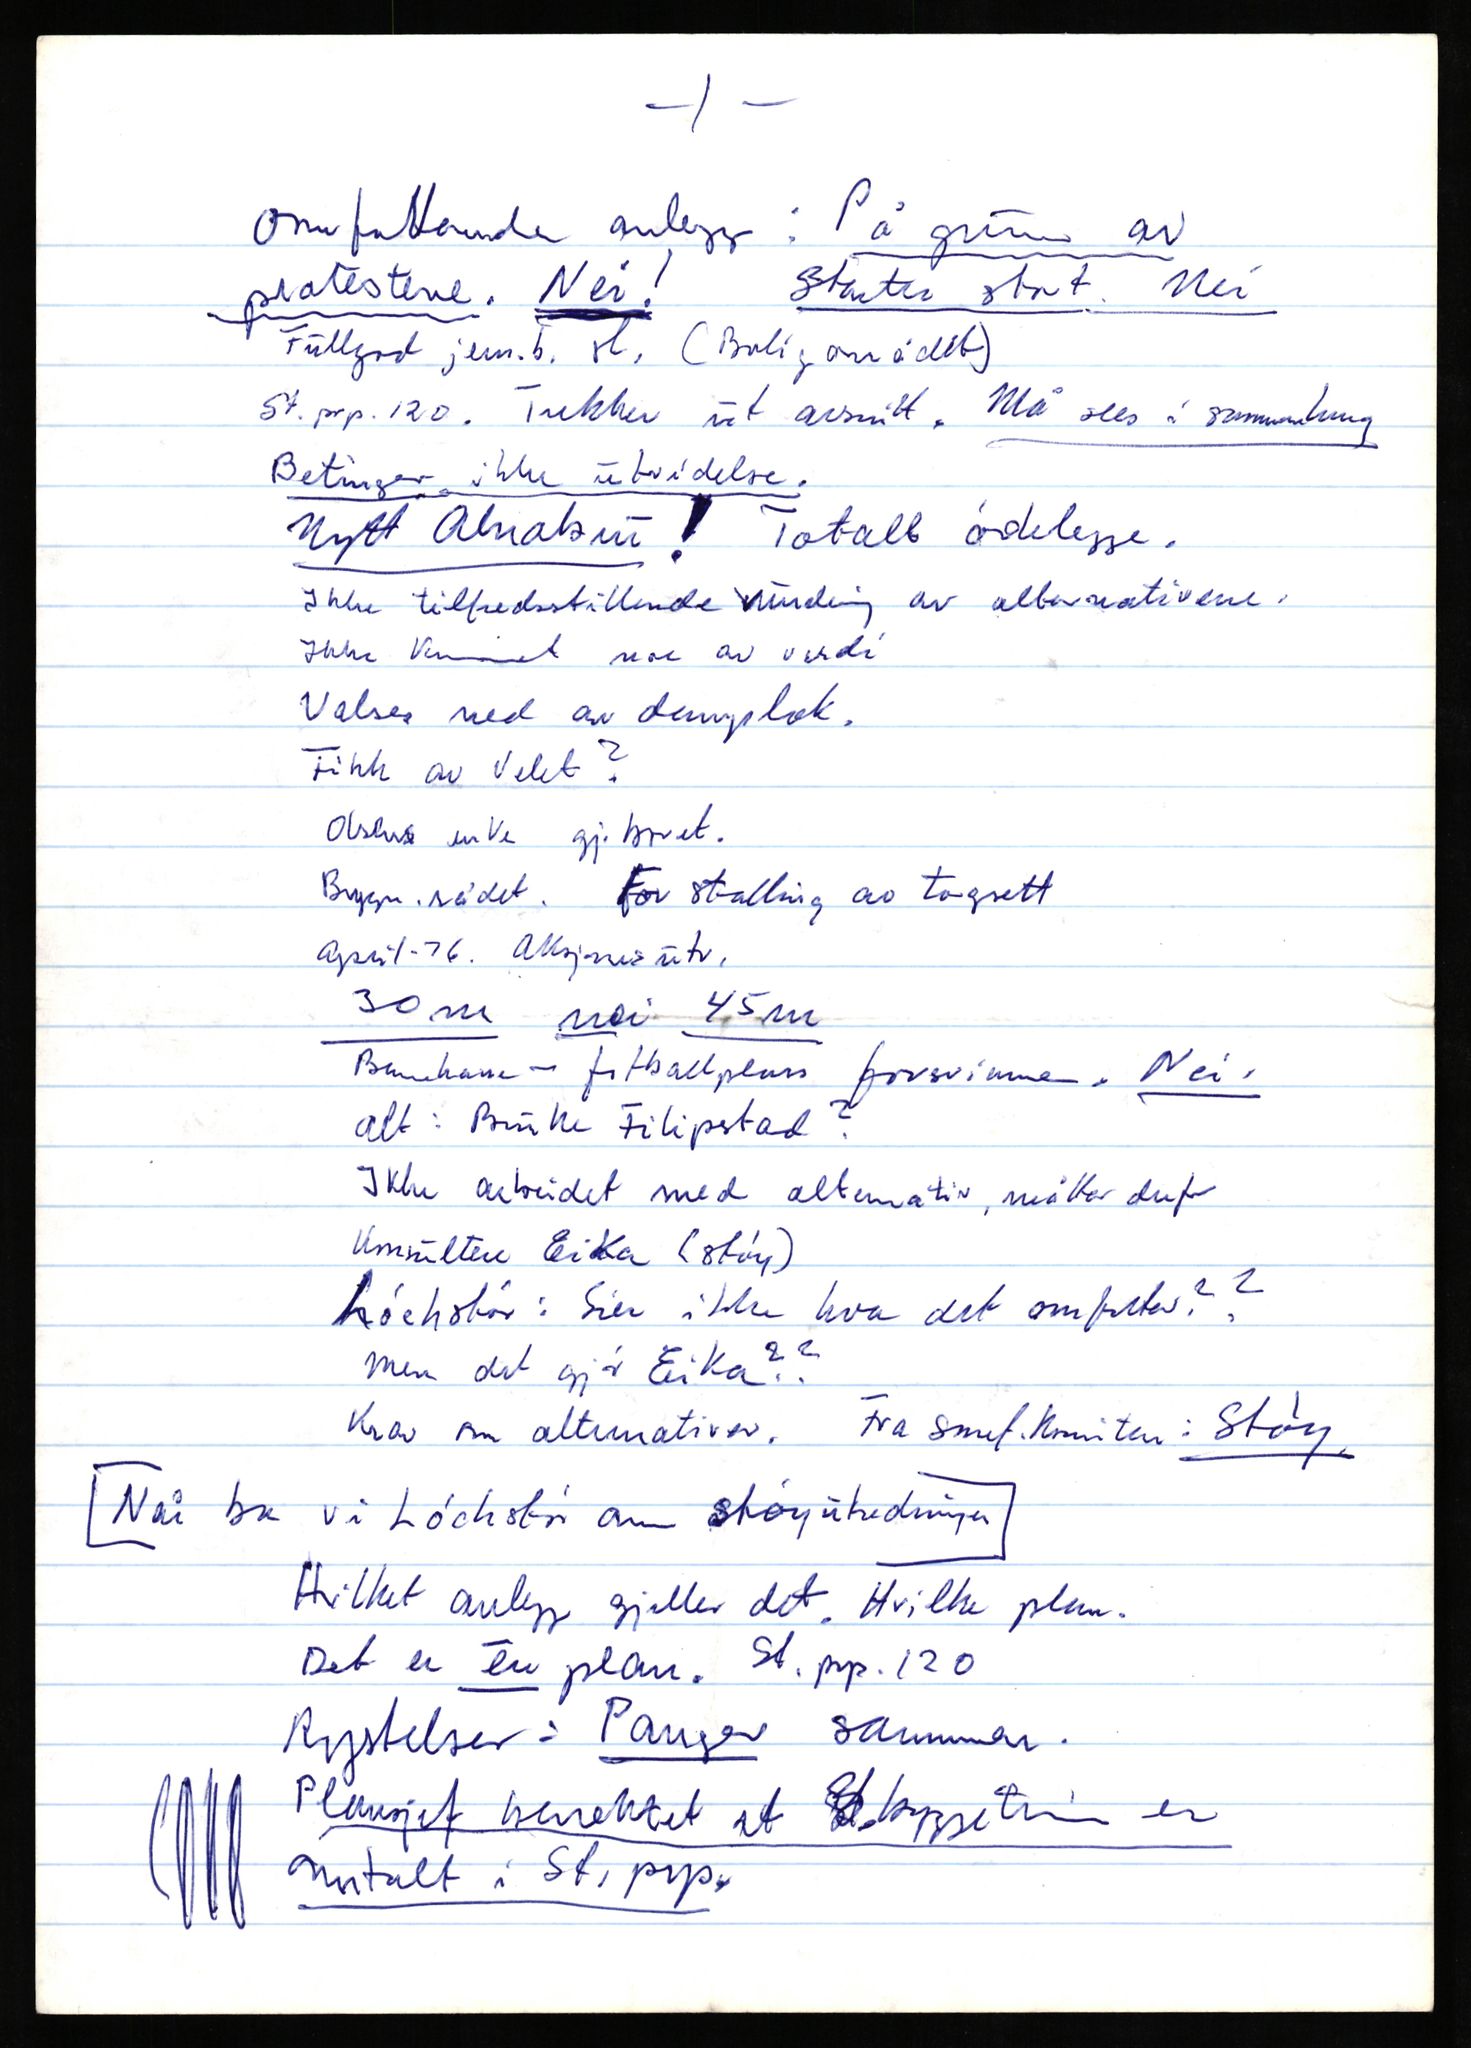 -1-
Omfattende anlegg: På grunn av
protestene. Nei! Starter stort. Nei
Fullgod jernb. st. (Boligområdet)
St. prp. 120. Trekker ut avsnitt. Må sees i sammenheng
Betinger ikke utvidelse.
Nytt Alnabru! Totalt ødelegge.
Ikke tilfredsstillende vurdering av alternativene.
Ikke kommet noe av verdi
Valses ned av damplok.
Fikk av Velet?
enke gj. boret.
Bygn.rådet. For stalling av togsett
April-76. Aksjonsutv.
30m nei 45m
Barnehave - fotballplass forsvinner. Nei.
Alt: Bruke Filipstad?
Ikke arbeidet med alternativ, måtte derfor
konsultere Eika (støy)
Löchstör: Sier ikke hva det omfatter??
Men det gjør Eika??
Krav om alternativer. Fra samf.komiteen: Støy.
Nå ba vi Löchstör om støyutredningen
Hvilket anlegg gjelder det. Hvilke plan.
Det er én plan. St. prp. 120
Rystelser: Penger sammen.
Plansjef benektet at St. byggetrin er
omtalt i St. prp.